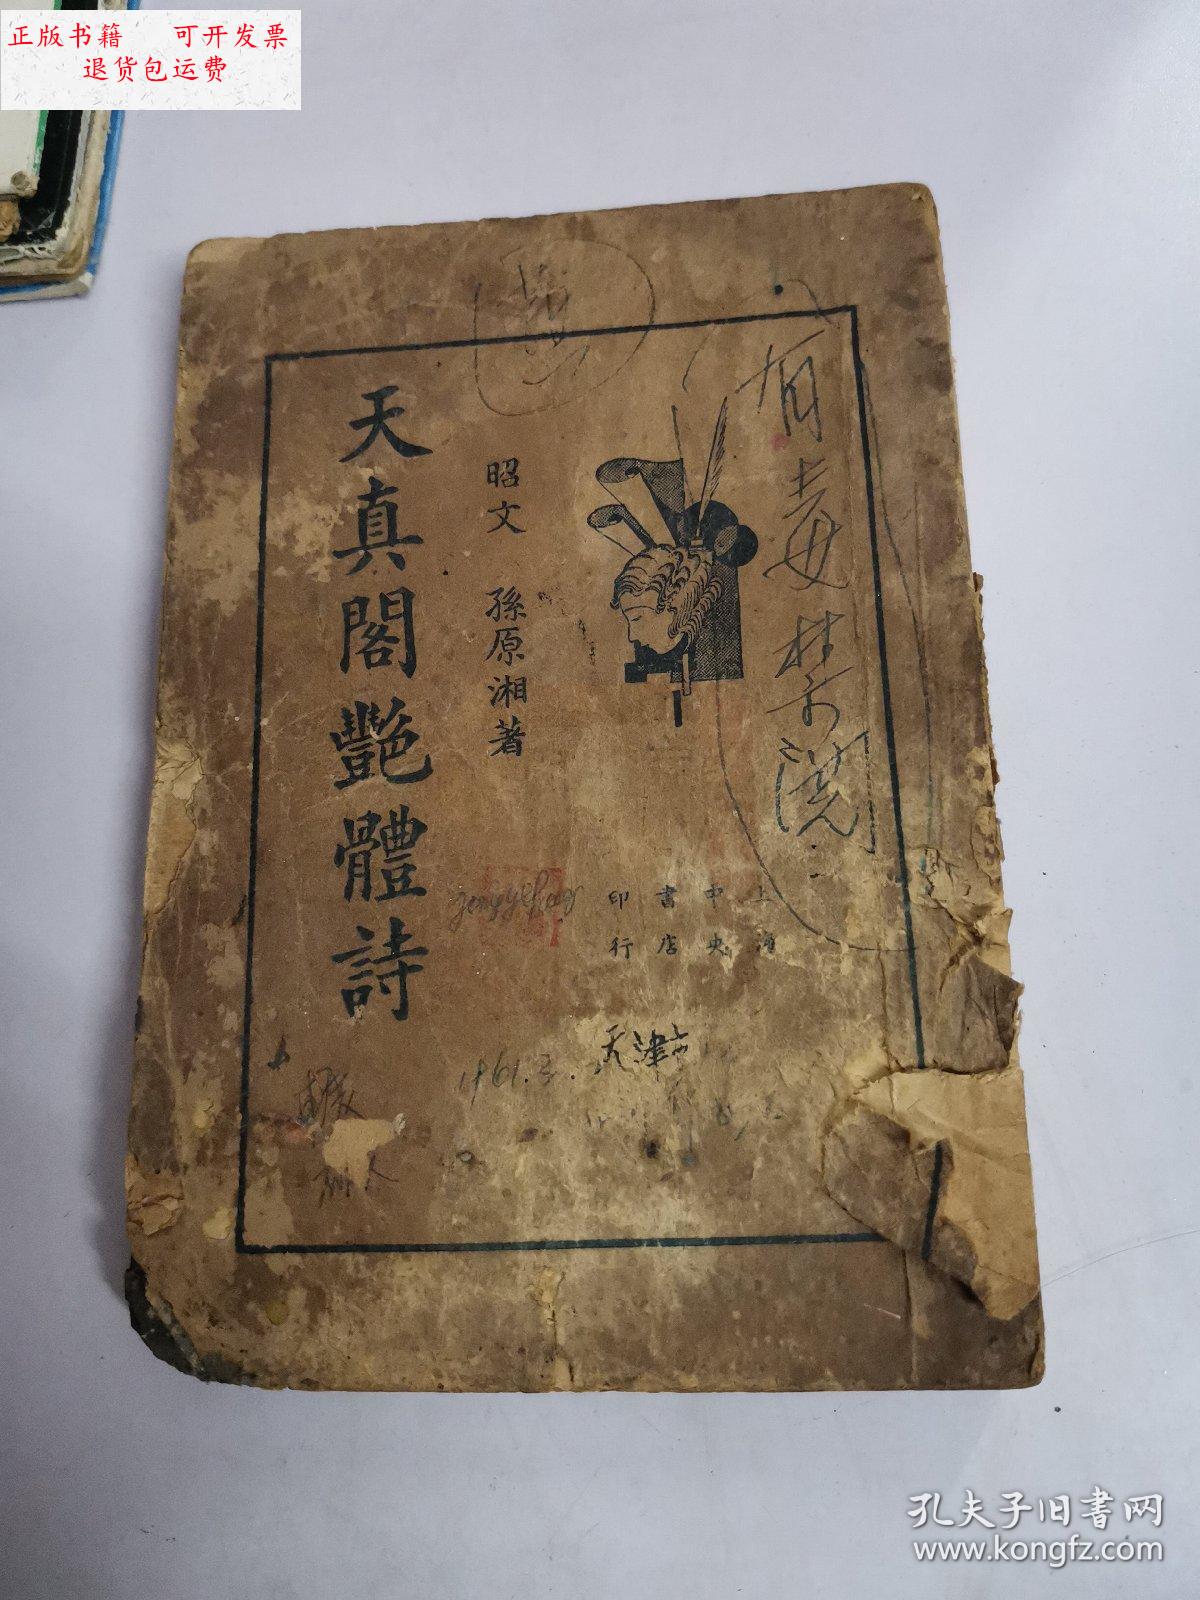 正版书籍 可开发票
退货包运费
有毒禁阅
上海
中央
書店
印行
昭文 孫原湘著
天真閣艷體詩
1961.3.
天津市
孔夫子旧书网
www.kongfz.com